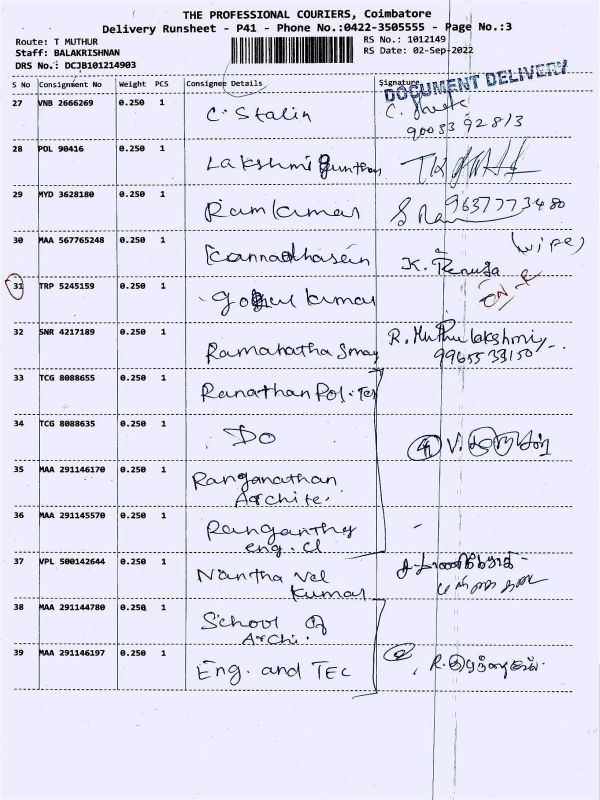 THE PROFESSIONAL COURIERS, Coimbatore
Delivery Runsheet - P41 - Phone No.:0422-3505555 - Page No.:3
Route: T MUTHUR
Staff: BALAKRISHNAN
DRS No.: DCJB101214903
RS No.: 1012149
RS Date: 02-Sep-2022
S No Consignment No Weight PCS Consignee Details Signature
DOCUMENT DELIVERY
27 VNB 2666269 0.250 1 C. Stalin C.
90033 92813
28 POL 90416 0.250 1 Lakshmi
29 MYD 3628180 0.250 1 Ramkumar S Ram 9637773480
30 MAA 567765248 0.250 1 Kannadhasan K. Renuga (wipe)
31 TRP 5245159 0.250 1 kumar
32 SNR 4217189 0.250 1 R. Muthu lakshmi
9965533150
33 TCG 8088655 0.250 1 Ranathan Pol. Tec
34 TCG 8088635 0.250 1 DO V.
35 MAA 291146170 0.250 1 Ranganathan
Archite.
36 MAA 291145570 0.250 1
eng. cl
37 VPL 500142644 0.250 1 Nantha vel
Kumar
38 MAA 291144780 0.250 1 School of
Archi.
39 MAA 291146197 0.250 1 Eng. and TEC R.